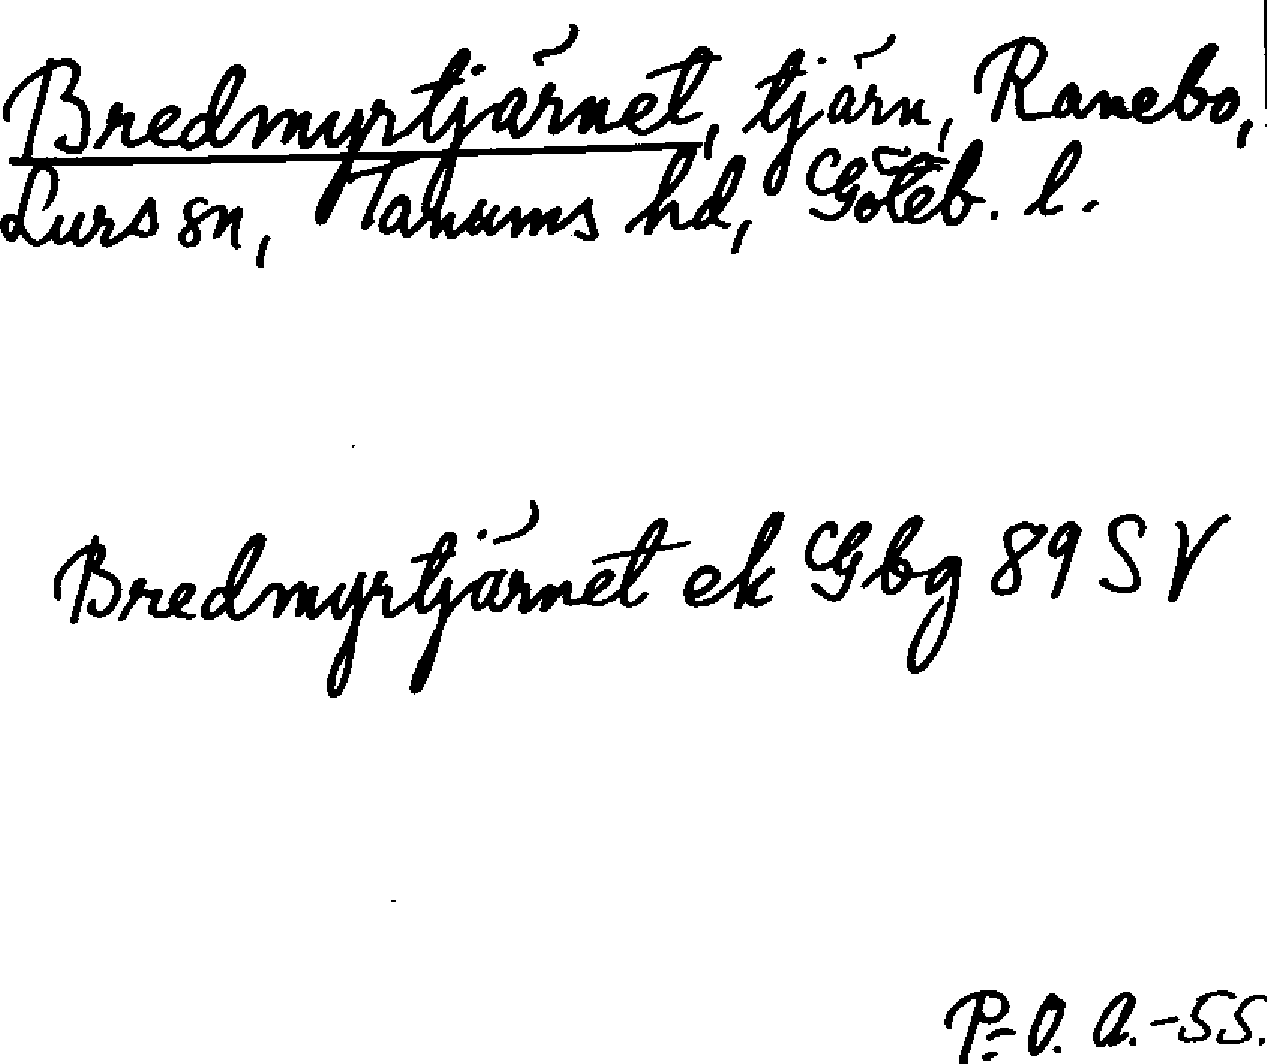 Bredmyrtjärnet, tjärn, Ranebo,
Lurs sn, Tanums hd, Göteb. l.
Bredmyrtjärnet ek Gbg 89 SV
P-O. A.-55.